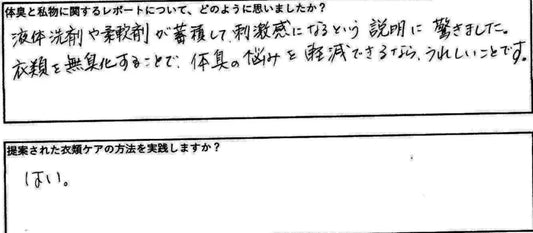 体臭と私物に関するレポートについて、どのように思いましたか?
液体洗剤や柔軟剤が蓄積して、刺激感になるという説明に驚きました。
衣類を無臭化することで、体臭の悩みを軽減できるなら、うれしいことです。
提案された衣類ケアの方法を実践しますか?
はい。